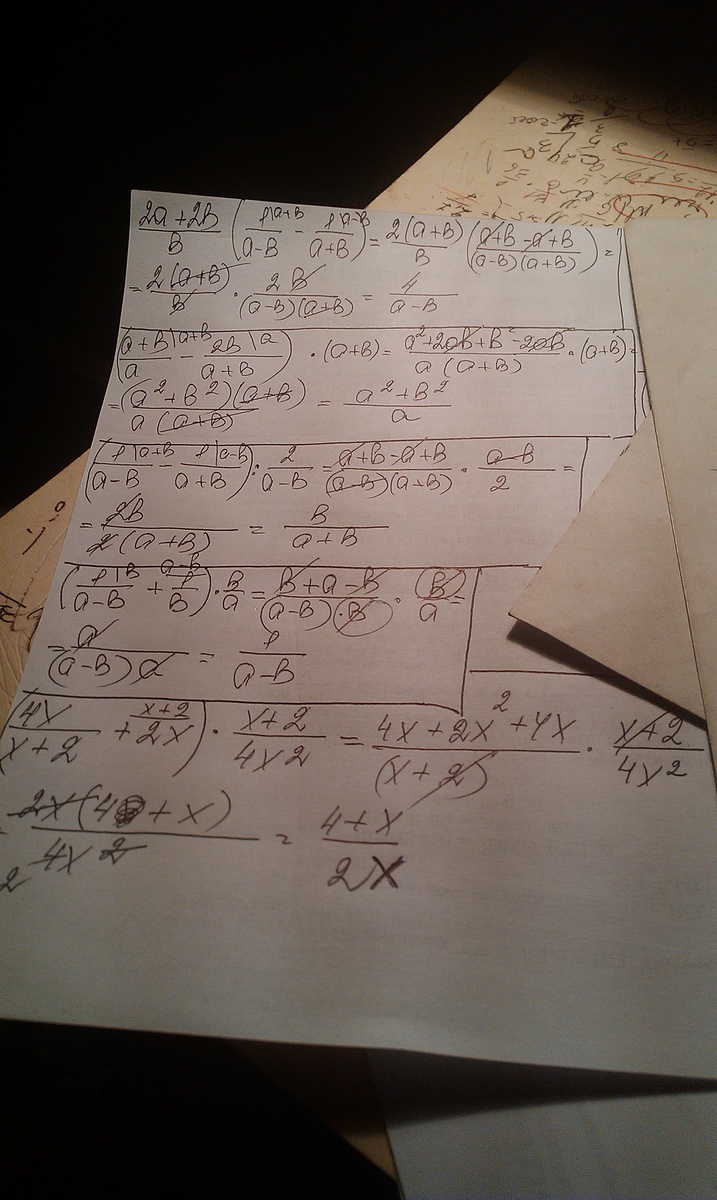 (2a+2B)/B (1\a+B/(a-B) - 1\a-B/(a+B)) = 2(a+B)/B ((a+B-a+B)/((a-B)(a+B))) =
= 2(a+B)/B · 2B/((a-B)(a+B)) = 4/(a-B)
((a+B)\a+B/a - 2B\a/(a+B)) · (a+B) = (a²+2aB+B²-2aB)/(a(a+B)) · (a+B) =
= (a²+B²)(a+B)/(a(a+B)) = (a²+B²)/a
(1\a+B/(a-B) - 1\a-B/(a+B)) : 2/(a-B) = (a+B-a+B)/((a-B)(a+B)) · (a-B)/2 =
= 2B/(2(a+B)) = B/(a+B)
(1\B/(a-B) + 1\a-B/B) · B/a = (B+a-B)/((a-B)·B) · (B)/a =
= a/((a-B)a) = 1/(a-B)
(4x/(x+2) + 2x\x+2) · (x+2)/(4x2) = (4x+2x²+4x)/(x+2) · (x+2)/(4x²)
2x(4+x)/(4x2) = (4+x)/(2x)
2